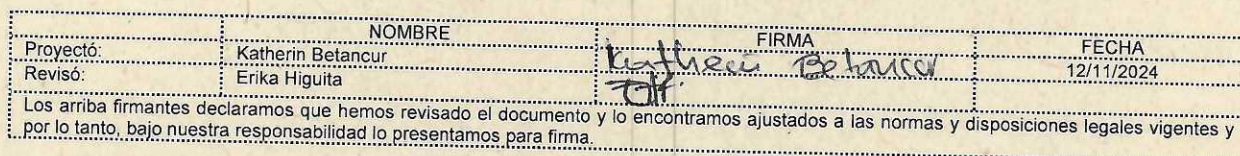 NOMBRE FIRMA FECHA
Proyectó: Katherin Betancur Katherin Betancur 12/11/2024
Revisó: Erika Higuita
Los arriba firmantes declaramos que hemos revisado el documento y lo encontramos ajustados a las normas y disposiciones legales vigentes y
por lo tanto, bajo nuestra responsabilidad lo presentamos para firma.